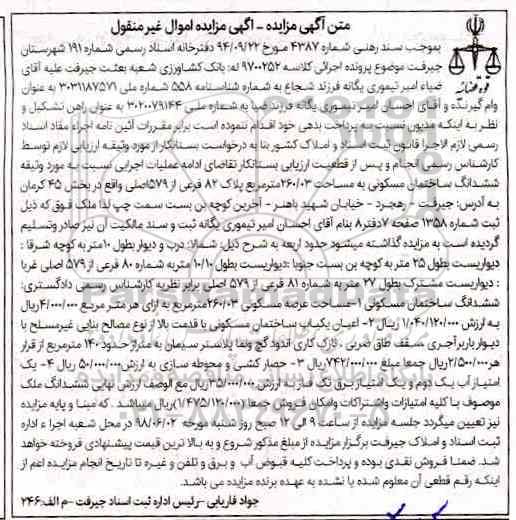 متن آگهی مزایده - آگهی مزایده اموال غیر منقول
بموجب سند رهنی شماره ۴۳۸۷ مورخ ۹۴/۰۹/۲۲ دفترخانه اسناد رسمی شماره ۱۹۱ شهرستان
جیرفت موضوع پرونده اجرائی کلاسه ۹۷۰۰۲۵۲ له: بانک کشاورزی شعبه بعثت جیرفت علیه آقای
ضیاء امیر تیموری یگانه فرزند شجاع به شماره شناسنامه ۵۵۸ شماره ملی ۳۰۳۱۱۸۷۵۷۱ به عنوان
وام گیرنده و آقای احسان امیر تیموری یگانه فرزند ضیا به شماره ملی ۳۰۲۰۰۷۹۱۴۴ به عنوان راهن تشکیل و
نظر به اینکه مدیون نسبت به پرداخت بدهی خود اقدام ننموده است برابر مقررات آئین نامه اجراء مفاد اسناد
رسمی لازم الاجرا قانون ثبت اسناد و املاک کشور بنا به درخواست بستانکار از مورد وثیقه ارزیابی لازم توسط
کارشناس رسمی انجام و پس از قطعیت ارزیابی بستانکار تقاضای ادامه عملیات اجرایی نسبت به مورد وثیقه
ششدانگ ساختمان مسکونی به مساحت ۲۶۰/۰۳مترمربع پلاک ۸۲ فرعی از ۵۷۹اصلی واقع در بخش ۴۵ کرمان
به آدرس: جیرفت - رهجرد - خیابان شهید باهنر - آخرین کوچه بن بست سمت چپ لذا ملک فوق که ذیل
ثبت شماره ۱۳۵۸ صفحه ۷دفتر۸ بنام آقای احسان امیر تیموری یگانه ثبت و سند مالکیت آن نیز صادر وتسلیم
گردیده است به مزایده گذاشته میشود حدود اربعه به شرح ذیل: شمالا: درب و دیوار بطول ۱۰متر به کوچه شرقا :
دیواریست بطول ۲۵ متر به کوچه بن بست جنوبا :دیواریست بطول ۱۰/۱۰متر به شماره ۸۰ فرعی از ۵۷۹ اصلی غربا
: دیواریست مشترک بطول ۲۷ متر به شماره ۸۱ فرعی از ۵۷۹ اصلی برابر نظریه کارشناس رسمی دادگستری:
ششدانگ ساختمان مسکونی ۱-مساحت عرصه مسکونی ۲۶۰/۰۳مترمربع به ازای هر متر مربع ۴/۰۰۰/۰۰۰ریال
به ارزش ۱/۰۴۰/۱۲۰/۰۰۰ ریال ۲- اعیان یکباب ساختمان مسکونی با قدمت بالا از نوع مصالح بنایی غیرمسلح با
دیوار باربر آجری سقف طاق ضربی ، نازک کاری اندود گچ ونما پلاستر سیمان به متراژ حدود ۱۴۰ مترمربع از قرار
هر۲/۵۰۰/۰۰۰ریال جمعا مبلغ ۷۴۲/۰۰۰/۰۰۰ریال ۳- حصار کشی و محوطه سازی به ارزش ۵۰/۰۰۰/۰۰۰ ریال ۴- یک
امتیاز آب یک دوم و یک امتیاز برق تک فاز به ارزش ۳۵/۰۰۰/۰۰۰ریال مع الوصف ارزش نهایی ششدانگ ملک
موصوف با کلیه امتیازات واشتراکات وامکان فروش جمعا (۱/۴۷۵/۱۲۰/۰۰۰) ریال میباشد. که مبنا و پایه مزایده
نیز تعیین میگردد جلسه مزایده از ساعت ۹ الی ۱۲ صبح روز شنبه مورخه ۹۸/۰۶/۰۲ در محل شعبه اجرا ء اداره
ثبت اسناد و املاک جیرفت برگزار مزایده از مبلغ مذکور شروع و به بالا ترین قیمت پیشنهادی فروخته خواهد
شد. ضمنا فروش نقدی بوده و پرداخت کلیه قبوض آب و برق و تلفن و غیره تا تاریخ انجام مزایده اعم از
اینکه رقم قطعی آن معلوم شده یا نشده به عهده برنده مزایده می باشد.
جواد فاریابی -رئیس اداره ثبت اسناد جیرفت -م الف:۲۴۶